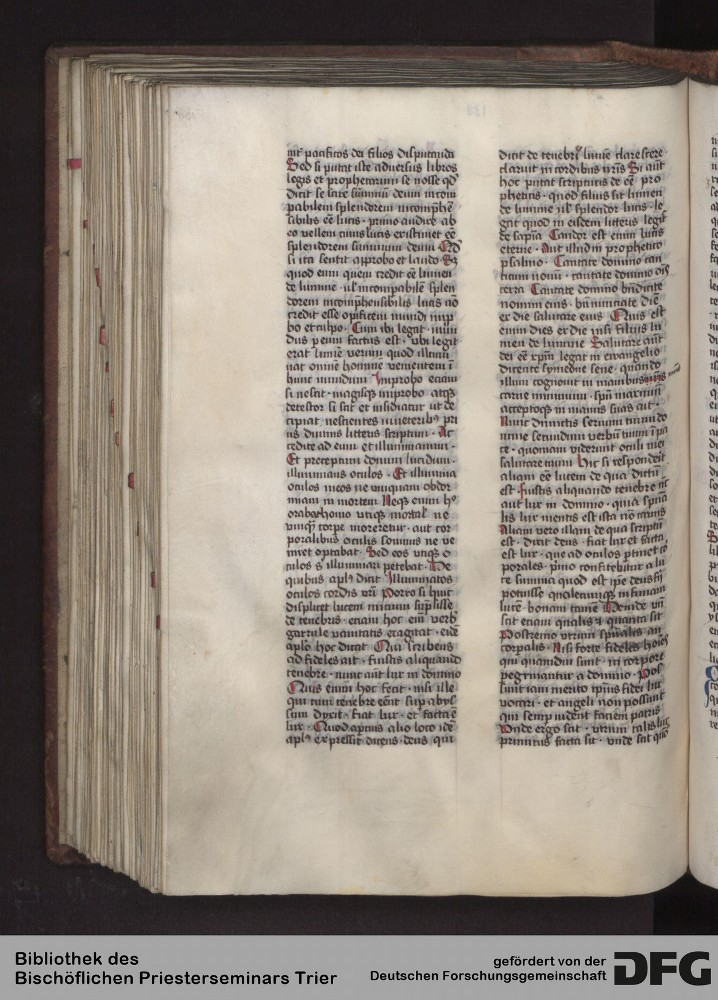 nit pacificos dei filios disputandi
Sed si putat iste adversus libros
legis et prophetarum se nosse qd
dicit se laude summum deum incom
pabilem splendorem incomphen
sibilis eē lucis · primo audire ab
eo vellem cuius lucis existimet eē
splendorem summum deum
si ita sentit approbo et laudo · Si
quod eum quem credit eē lumen
de lumine · ul incompabilē splen
dorem incomphensibilis lucis nō
credit esse opificem mundi imp
bo et culpo · Cum ibi legat · mun
dus p eum factus est · ubi legit
erat lumē verum quod illumi
nat omnē homine venientem ī
hunc mundum Improbo eciam
si nescit · magisq improbo atq
detestor si scit et insidiatur ut de
cipiat nescientes
divinis litteris scriptum · Ac
cedite ad eum et illuminamini ·
Et preceptum domini lucidum ·
illuminans oculos · Et illumina
oculos meos ne umquam obdor
miam in mortem Neq enim h°
orabat homo utiq mortal ne
umq corpe moreretur · aut cor
poralibus oculis somnus ne ve
niret optabat · Sed eos utiq o
culos s illuminari petebat · De
quibus apls dicit Illuminatos
oculos cordis vri Porro si huic
displicet lucem
de tenebris · eciam hoc em verb
garrule vanitatis exagitat · eidē
aplo hoc dicat Qui scribens
ad fideles ait · fuistis aliquando
tenebre · nunc aūt lux in domino
Quis enim hoc fecit · nisi ille
qui cum tenebre eēnt sup abys
sum dixit · fiat lux · et facta ē
lux · Quod apcius alio loco idē
apls expressit dicens · deus qui
dicit de tenebris lumē clarescere
claruit in cordibus vris Si aūt
hoc putat scripturis de eē pro
phetris · quod filius sit lumen
de lumine ul splendor lucis · le
gat quod in eisdem litteris legit
de sapīa Candor est enim lucis
eterne · Aut illud in prophetico
psalmo · Cantate domino can
ticum nouū · cantate domino ois
terra Cantate domino bndicite
nomini eius · bn nunciate diē
ex die salutare eius Quis est
enim dies ex die nisi filius lu
men de lumine Salutare aūt
dei eē xpm legat in ewangelio
dicente symeone sene · quando
illum cognouit in manibus
carne minimum · spu maximū
accepitq in manus suas ait ·
Nunc dimittis seruum tuum do
mine secundum verbū tuum ī pa
ce · quoniam viderunt oculi mei
salutare tuum Hic si respondeat
aliam eē lucem de qua dictū
est fuistis aliquando tenebre nc
aut lux in domino · quia spiri
lis lux mentis est ista nō carnis
Aliam vero illam de qua scriptū
est · dixit deus · fiat lux et facta
est lux · que ad oculos ptinet cō
porales · pmo confitebitur a lu
ce summa quod est ipe deus
potuisse qualemcumq infimam
lucē bonam tamē Deinde vn
sciat eciam qualis et quanta sit
Postremo utrum spualis an
corpalis · Nisi forte fideles hoies
qui quamdiu sunt · in corpore
pegrinantur a domino · Pos
sunt iam merito ipius fidei lux
vocari · et angeli non possunt
qui semp vident faciem patris
Unde ergo scit · utrum talis lux
primitus facta sit · unde scit quō
Bibliothek des
Bischöflichen Priesterseminars Trier
gefördert von der
Deutschen Forschungsgemeinschaft
DFG